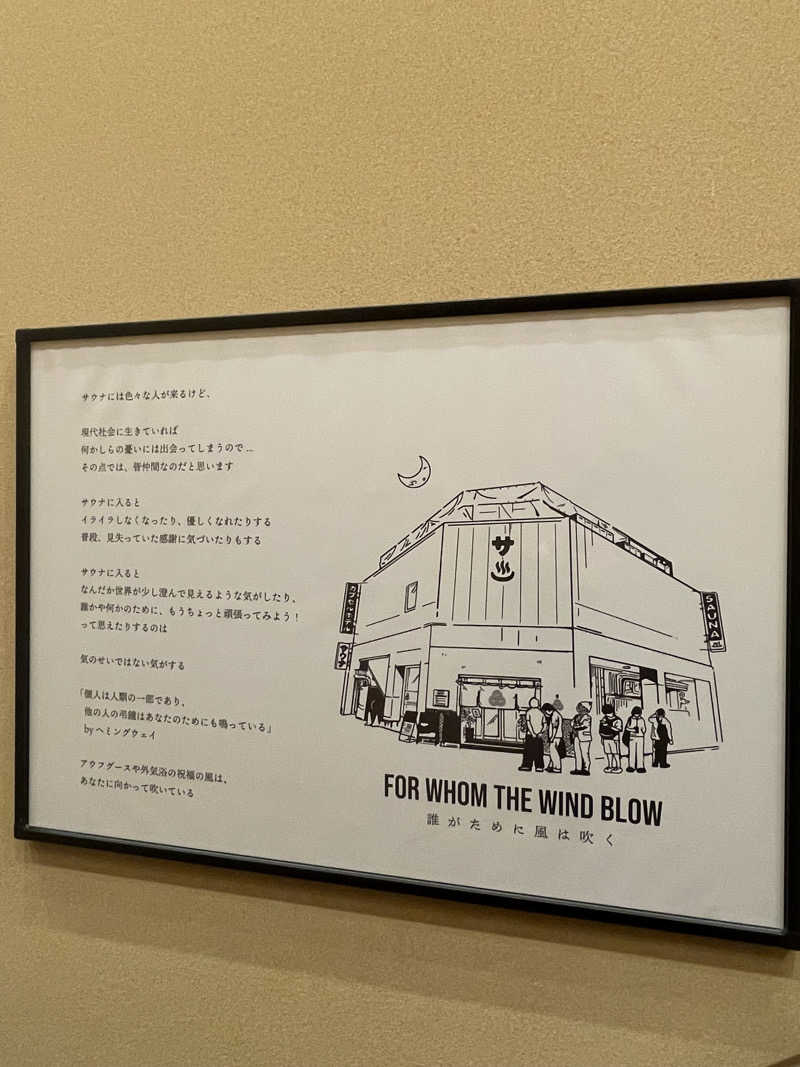 サウナには色々な人が来るけど、
現代社会に生きていれば
何かしらの憂いには出会ってしまうので...
その点では、皆仲間なのだと思います
サウナに入ると
イライラしなくなったり、優しくなれたりする
普段、見失っていた感謝に気づいたりもする
サウナに入ると
なんだか世界が少し澄んで見えるような気がしたり、
誰かや何かのために、もうちょっと頑張ってみよう！
って思えたりするのは
気のせいではない気がする
「個人は人類の一部であり、
他の人の弔鐘はあなたのためにも鳴っている」
byヘミングウェイ
アウフグースや外気浴の祝福の風は、
あなたに向かって吹いている
サ
カプセルホテル
サウナ
SAUNA
FOR WHOM THE WIND BLOW
誰がために風は吹く